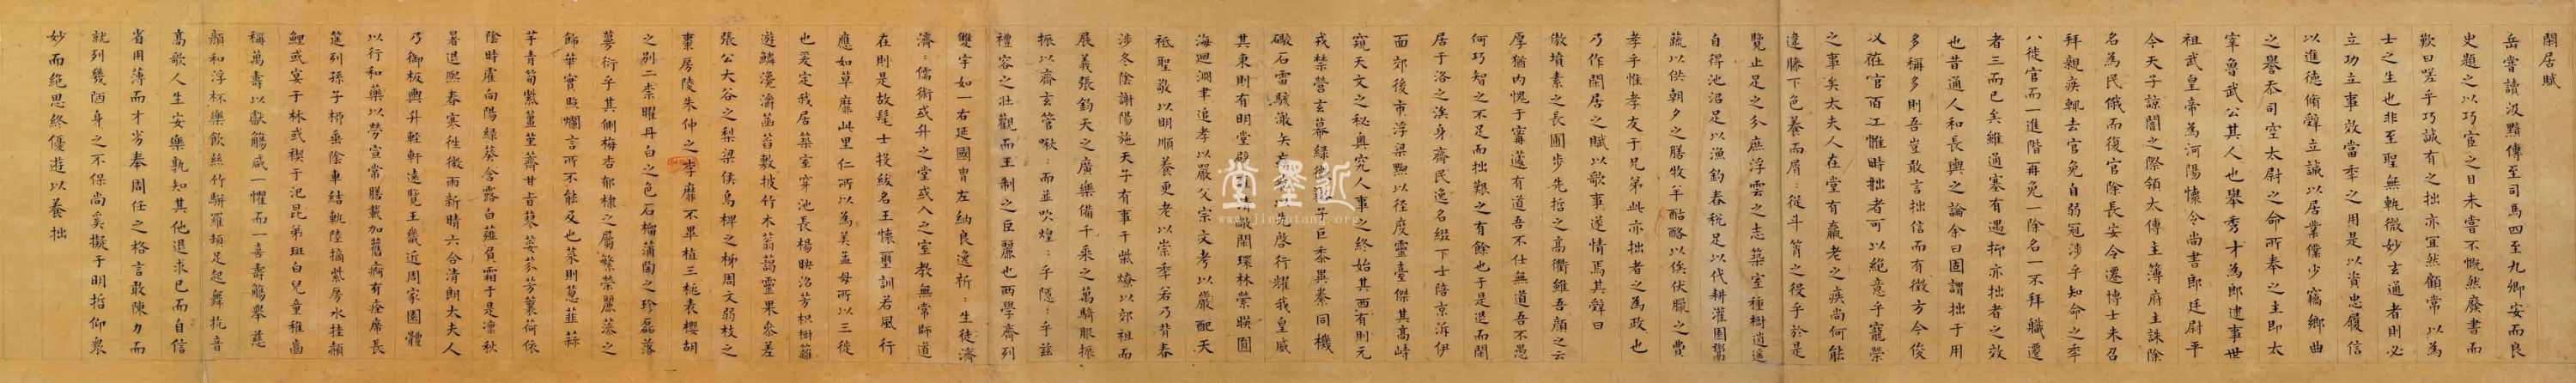 閑居賦
岳嘗讀汲黯傳至司馬四至九卿安而良
史題之以巧宦之目未嘗不慨然廢書而
歎曰嗟乎巧誠有之拙亦宜然顧常以為
士之生也非至聖無軌微妙玄通者則必
立功立事效當年之用是以資忠履信
以進德脩辭立誠以居業僕少竊鄉曲
之譽忝司空太尉之命所奉之主即太
宰魯武公其人也舉秀才為郎逮事世
祖武皇帝為河陽懷令尚書郎廷尉平
今天子諒闇之際領太傅主簿府主誅除
名為民俄而復官除長安令遷博士未召
拜親疾輒去官免自弱冠涉乎知命之年
八徙官而一進階再免一除名一不拜職遷
者三而已矣雖通塞有遇抑亦拙者之效
也昔通人和長輿之論余曰固謂拙于用
多稱多則吾豈敢言拙信而有徵方今俊
乂在官百工惟時拙者可以絕意乎寵榮
之事矣太夫人在堂有羸老之疾尚何能
違膝下色養而屑:從斗筲之役乎於是
覽止足之分庶浮雲之志築室種樹逍遙
自得池沼足以漁釣舂稅足以代耕灌園鬻
蔬以供朝夕之膳牧羊酤酪以俟伏臘之費
孝乎惟孝友于兄弟此亦拙者之為政也
乃作閑居之賦以歌事遂情焉其辭曰
傲墳素之長圃步先哲之高衢雖吾顏之云
厚猶內愧于甯蘧有道吾不仕無道吾不愚
何巧智之不足而拙艱之有餘也于是退而閑
居于洛之涘身齊民逸名綴下士陪京泝伊
面郊後市浮梁黝以徑度靈臺傑其高峙
窺天文之秘奧究人事之終始其西有則元
戎禁營玄幕綠徽子巨黍異絭同機
礮石雷駭激矢先啓行耀我皇威
其東則有明堂敞閑環林縈暎圓
海迴淵聿追孝以嚴父宗文考以嚴配天
祗聖敬以明順養更老以崇年若乃背春
涉冬陰謝陽施天子有事于柴燎以郊祖而
展義張鈞天之廣樂備千乘之萬騎服振
振以齊玄管啾:而並吹煌:乎隱:乎茲
禮容之壯觀而王制之巨麗也兩學齊列
雙宇如一右延國冑左納良逸祈:生徒濟
濟:儒術或升之堂或入之室教無常師道
在則是故髦士投紱名王懷璽訓若風行
應如草靡此里仁所以為美孟母所以三徙
也爰定我居築室穿池長楊映沼芳枳樹籬
遊鱗瀺灂菡萏敷披竹木蓊藹靈果參差
張公大谷之梨梁侯烏椑之柿周文弱枝之
棗房陵朱仲之李靡不畢植三桃表櫻胡
之別二柰曜丹白之色石榴蒲萄之珍磊落
蔓衍乎其側梅杏郁棣之屬繁榮麗藻之
飾華實照爛言所不能及也菜則蔥韭蒜
芋青筍紫薑堇薺甘旨蓼荾芬芳蘘荷依
陰時藿向陽綠葵含露白薤負霜于是凜秋
暑退熙春寒往微雨新晴六合清朗太夫人
乃御板輿升輕軒遠覽王畿近周家園體
以行和藥以勞宣常膳載加舊痾有痊席長
筵列孫子柳垂陰車結軌陸摘紫房水挂赬
鯉或宴于林或禊于汜昆弟班白兒童稚齒
稱萬壽以獻觴咸一懼而一喜壽觴舉慈
顏和浮杯樂飲絲竹駢羅頓足起舞抗音
高歌人生安樂孰知其他退求己而自信
省用薄而才劣奉周任之格言敢陳力而
就列幾陋身之不保尚奚擬于明哲仰衆
妙而絕思終優遊以養拙
近墨堂
www.jinmotang.org